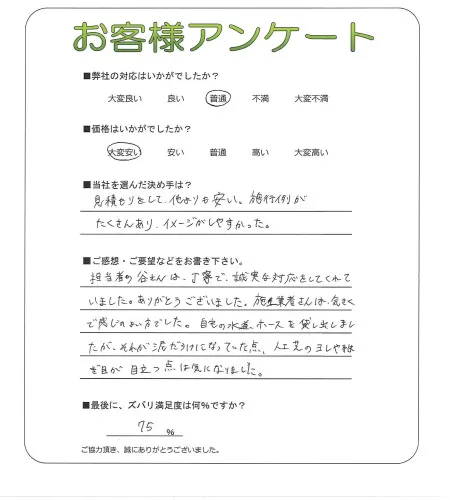 お客様アンケート
■弊社の対応はいかがでしたか？
大変良い 良い 普通 不満 大変不満
■価格はいかがでしたか？
大変安い 安い 普通 高い 大変高い
■当社を選んだ決め手は？
見積もりをして、他よりも安い。施行例が
たくさんあり、イメージがしやすかった。
■ご感想・ご要望などをお書き下さい。
担当者の谷さんは、丁寧で、誠実な対応をしてくれて
いました。ありがとうございました。施工業者さんは、気さく
で感じのよい方でした。自宅の水道、ホースを貸し出しまし
たが、それが泥だらけになっていた点、人工芝のヨレや継
ぎ目が目立つ点は気になりました。
■最後に、ズバリ満足度は何％ですか？
75 %
ご協力頂き、誠にありがとうございました。